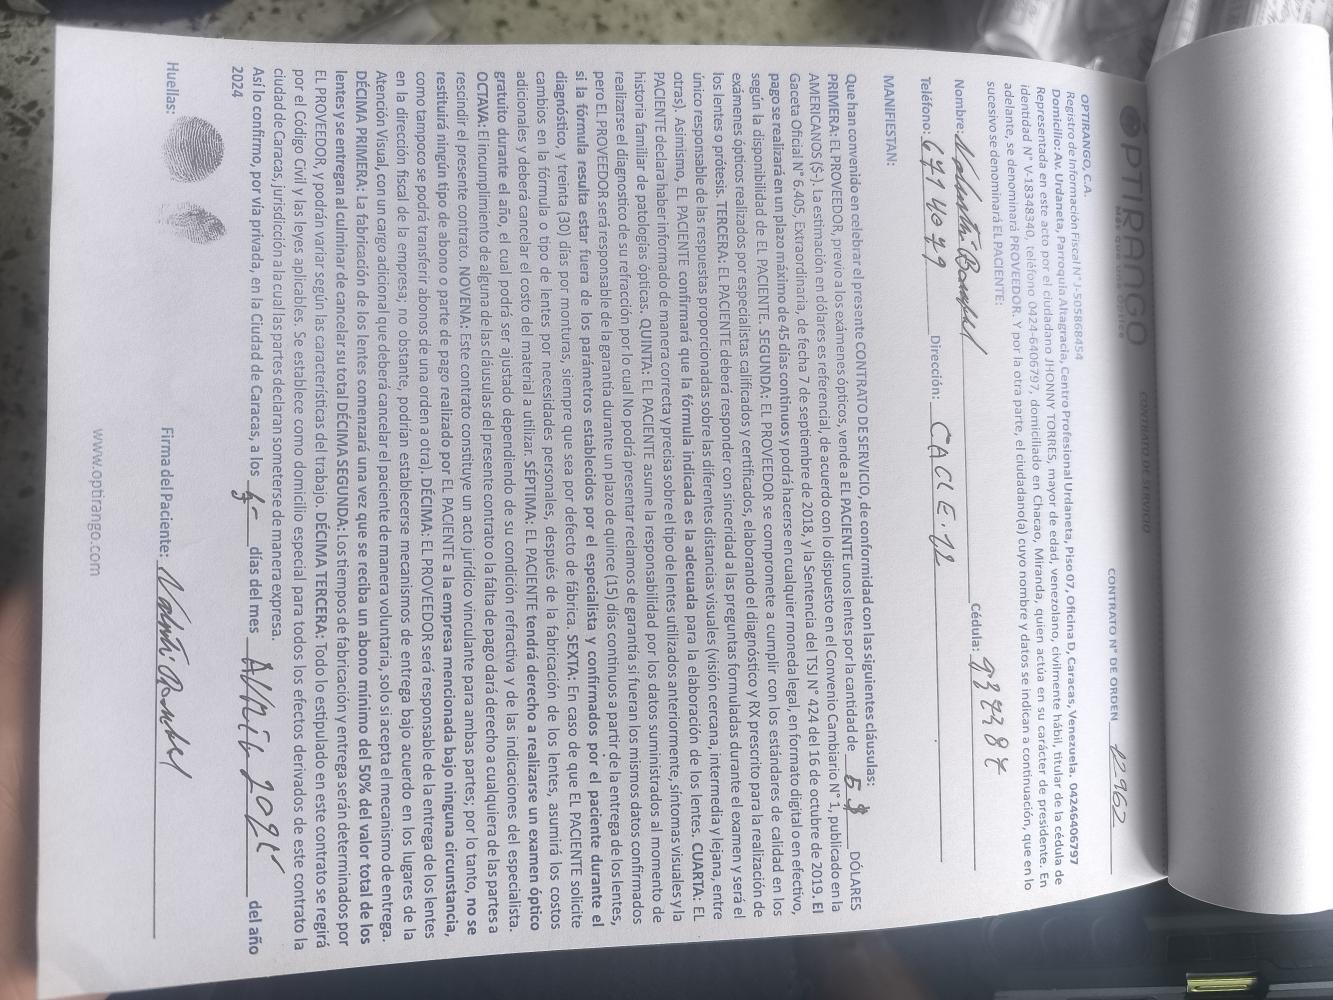 OPTIRANGO
Más que una óptica
CONTRATO DE SERVICIO
CONTRATO N° DE ORDEN 12962
OPTIRANGO, C.A.
Registro de Información Fiscal N° J-505868454
Domicilio: Av. Urdaneta, Parroquia Altagracia, Centro Profesional Urdaneta, Piso 07, Oficina D, Caracas, Venezuela. 04246406797
Representada en este acto por el ciudadano JHONNY TORRES, mayor de edad, venezolano, civilmente hábil, titular de la cédula de
identidad N° V-18348340, teléfono 0424-6406797, domiciliado en Chacao, Miranda, quien actúa en su carácter de presidente. En
adelante, se denominará PROVEEDOR. Y por la otra parte, el ciudadano(a) cuyo nombre y datos se indican a continuación, que en lo
sucesivo se denominará EL PACIENTE:
Nombre: cédula:
Teléfono: Dirección:
MANIFIESTAN:
Que han convenido en celebrar el presente CONTRATO DE SERVICIO, de conformidad con las siguientes cláusulas:
PRIMERA: EL PROVEEDOR, previo a los exámenes ópticos, vende a EL PACIENTE unos lentes por la cantidad de 5 $ DÓLARES
AMERICANOS ($-). La estimación en dólares es referencial, de acuerdo con lo dispuesto en el Convenio Cambiario N° 1, publicado en la
Gaceta Oficial N° 6.405, Extraordinaria, de fecha 7 de septiembre de 2018, y la Sentencia del TSJ N° 424 del 16 de octubre de 2019. El
pago se realizará en un plazo máximo de 45 días continuos y podrá hacerse en cualquier moneda legal, en formato digital o en efectivo,
según la disponibilidad de EL PACIENTE. SEGUNDA: EL PROVEEDOR se compromete a cumplir con los estándares de calidad en los
exámenes ópticos realizados por especialistas calificados y certificados, elaborando el diagnóstico y RX prescrito para la realización de
los lentes o prótesis. TERCERA: EL PACIENTE deberá responder con sinceridad a las preguntas formuladas durante el examen y será el
único responsable de las respuestas proporcionadas sobre las diferentes distancias visuales (visión cercana, intermedia y lejana, entre
otras). Asimismo, EL PACIENTE confirmará que la fórmula indicada es la adecuada para la elaboración de los lentes. CUARTA: EL
PACIENTE declara haber informado de manera correcta y precisa sobre el tipo de lentes utilizados anteriormente, síntomas visuales y la
historia familiar de patologías ópticas. QUINTA: EL PACIENTE asume la responsabilidad por los datos suministrados al momento de
realizarse el diagnostico de su refracción por lo cual No podrá presentar reclamos de garantía si fueran los mismos datos confirmados
pero EL PROVEEDOR será responsable de la garantía durante un plazo de quince (15) días continuos a partir de la entrega de los lentes,
si la fórmula resulta estar fuera de los parámetros establecidos por el especialista y confirmados por el paciente durante el
diagnóstico, y treinta (30) días por monturas, siempre que sea por defecto de fábrica. SEXTA: En caso de que EL PACIENTE solicite
cambios en la fórmula o tipo de lentes por necesidades personales, después de la fabricación de los lentes, asumirá los costos
adicionales y deberá cancelar el costo del material a utilizar. SÉPTIMA: EL PACIENTE tendrá derecho a realizarse un examen óptico
gratuito durante el año, el cual podrá ser ajustado dependiendo de su condición refractiva y de las indicaciones del especialista.
OCTAVA: El incumplimiento de alguna de las cláusulas del presente contrato o la falta de pago dará derecho a cualquiera de las partes a
rescindir el presente contrato. NOVENA: Este contrato constituye un acto jurídico vinculante para ambas partes; por lo tanto, no se
restituirá ningún tipo de abono o parte de pago realizado por EL PACIENTE a la empresa mencionada bajo ninguna circunstancia,
como tampoco se podrá transferir abonos de una orden a otra). DÉCIMA: EL PROVEEDOR será responsable de la entrega de los lentes
en la dirección fiscal de la empresa; no obstante, podrían establecerse mecanismos de entrega bajo acuerdo en los lugares de la
Atención Visual, con un cargo adicional que deberá cancelar el paciente de manera voluntaria, solo si acepta el mecanismo de entrega.
DÉCIMA PRIMERA: La fabricación de los lentes comenzará una vez que se reciba un abono mínimo del 50% del valor total de los
lentes y se entregan al culminar de cancelar su total DÉCIMA SEGUNDA: Los tiempos de fabricación y entrega serán determinados por
EL PROVEEDOR, y podrán variar según las características del trabajo. DÉCIMA TERCERA: Todo lo estipulado en este contrato se regirá
por el Código Civil y las leyes aplicables. Se establece como domicilio especial para todos los efectos derivados de este contrato la
ciudad de Caracas, jurisdicción a la cual las partes declaran someterse de manera expresa.
Así lo confirmo, por vía privada, en la Ciudad de Caracas, a los días del mes del año
2024
Huellas: Firma del Paciente:
www.optirango.com